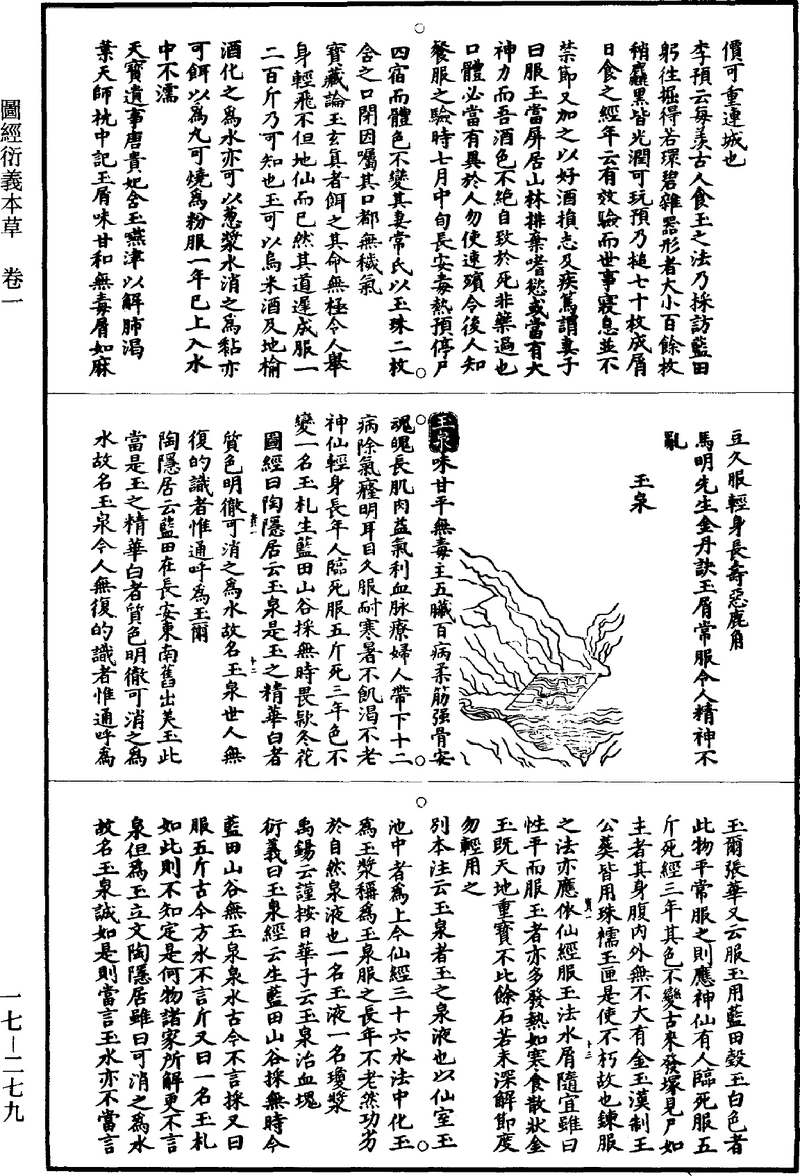 圖經衍義本草　卷一
一七－二七九
價可重連城也
李預云每羨古人食玉之法乃採訪藍田
躬往掘得若環碧雜器形者大小百餘枚
稍麤黑皆光潤可玩預乃槌七十枚成屑
日食之經年云有效驗而世事寢息並不
禁節又加之以好酒損志及疾篤謂妻子
曰服玉當屏居山林排棄嗜慾或當有大
神力而吾酒色不絕自致於死非藥過也
口體必當有異於人勿使速殯令後人知
餐服之驗時七月中旬長安毒熱預停尸
四宿而體色不變其妻常氏以玉珠二枚
含之口閉因囑其口都無穢氣
寶藏論玉玄真者餌之其命無極令人舉
身輕飛不但地仙而已然其道遲成服一
二百斤乃可知也玉可以烏米酒及地榆
酒化之為水亦可以蔥漿水消之為黏亦
可餌以為丸可燒為粉服一年已上入水
中不濡
天寶遺事唐貴妃含玉嚥津以解肺渴
葉天師枕中記玉屑味甘和無毒屑如麻
豆久服輕身長壽惡鹿角
馬明先生金丹訣玉屑常服令人精神不
亂
玉泉
玉泉味甘平無毒主五臟百病柔筋強骨安
魂魄長肌肉益氣利血脉療婦人帶下十二
病除氣癃明耳目久服耐寒暑不飢渴不老
神仙輕身長年人臨死服五斤死三年色不
變一名玉札生藍田山谷採無時畏款冬花
圖經曰陶隱居云玉泉是玉之精華白者
質色明徹可消之為水故名玉泉世人無
復的識者惟通呼為玉爾
陶隱居云藍田在長安東南舊出美玉此
當是玉之精華白者質色明徹可消之為
水故名玉泉今人無復的識者惟通呼為
玉爾張華又云服玉用藍田穀玉白色者
此物平常服之則應神仙有人臨死服五
斤死經三年其色不變古來發塚見尸如
主者其身腹內外無不大有金玉漢制王
公葬皆用珠襦玉匣是使不朽故也鍊服
之法亦應依仙經服玉法水屑隨宜雖曰
性平而服玉者亦多發熱如寒食散狀金
玉既天地重寶不比餘石若未深解節度
勿輕用之
別本注云玉泉者玉之泉液也以仙室玉
池中者為上今仙經三十六水法中化玉
為玉漿稱為玉泉服之長年不老然功劣
於自然泉液也一名玉液一名瓊漿
禹錫云謹按日華子云玉泉治血塊
衍義曰玉泉經云生藍田山谷採無時今
藍田山谷無玉泉泉水古今不言採又曰
服五斤古今方水不言斤又曰一名玉札
如此則不知定是何物諸家所解更不言
泉但為玉立文陶隱居雖曰可消之為水
故名玉泉誠如是則當言玉水亦不當言